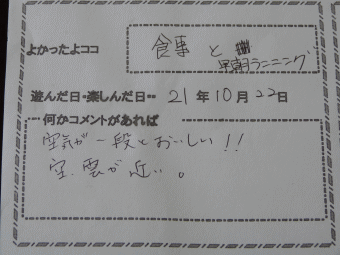 よかったよココ
食事と
早朝ランニング
遊んだ日・楽しんだ日・・ 21年10月22日
何かコメントがあれば
空気が一段とおいしい!!
空、雲が近い。